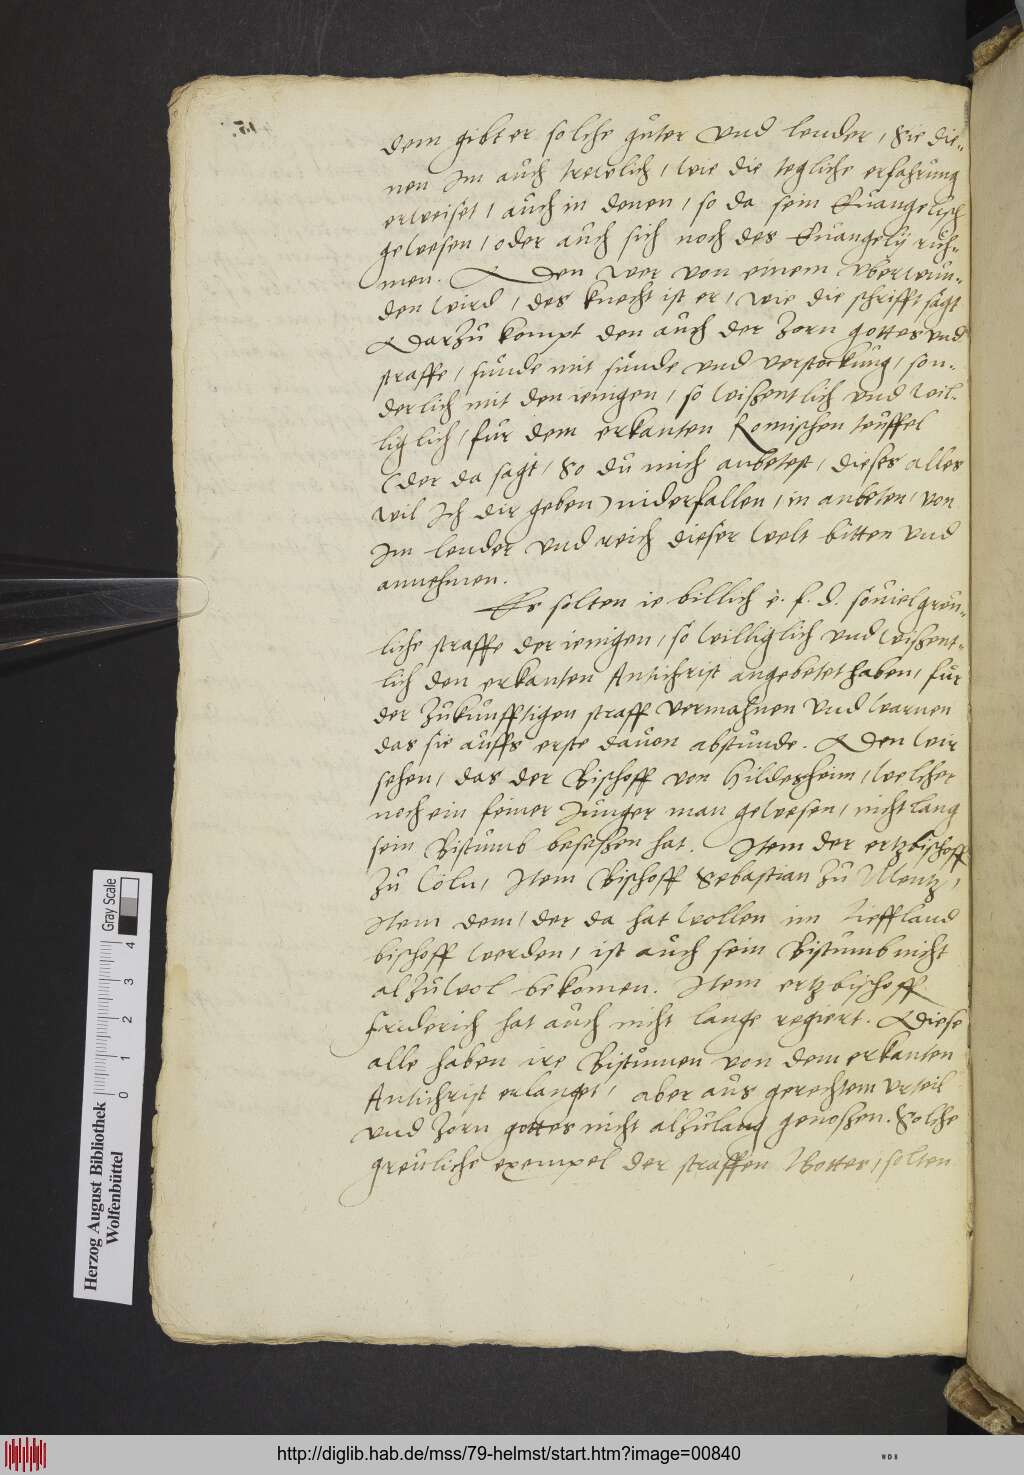 dem gibt er solche güter vnd lender, Sie die-
nen Im auch trewlich, wie die tegliche erfahrung
erweiset, auch in denen, so da sein Euangelisch
gewesen, oder auch sich noch des Euangelij rüh-
men. Den wer von einem vberwun-
den wird, des knecht ist er, wie die schrifft sagt
Darzu kompt den auch der Zorn gottes vnd
straffe, sunde mit sunde vnd verstockung, son-
derlich mit den ienigen, so wißentlich vnd wil-
liglich, fur dem erkanten Romischen teuffel
(der da sagt, So du mich anbetest, dieses alles
wil Ich dir geben) niderfallen, in anbeten, von
Im lender vnd reich dieser welt bitten vnd
annehmen.
Es solten ie billich e. f. d. souiel greu-
liche straffe der ienigen, so williglich vnd wißent-
lich den erkanten Antichrist angebetet haben, fur
der Zukunfftigen straff vermahnen vnd warnen
das sie auffs erste dauon abstunde. Den wir
sehen, das der Bischoff von Hildesheim, welcher
noch ein feiner Junger man gewesen, nicht lang
sein Bistumb beseßen hat. Item der ertzbischoff
zu Cöln, Item Bischoff Sebastian zu Mentz,
Item dem, der da hat wollen im Lieffland
bischoff werden, ist auch sein Bistumb nicht
alzuwol bekomen. Item ertzbischoff
Friderich hat auch nicht lange regiert. Diese
alle haben ire Bistumen von dem erkanten
Antichrist erlanget, aber aus gerechtem vrteil
vnd Zorn gottes nicht alzulang genoßen. Solche
greuliche exempel der straffen Gottes, solten
Herzog August Bibliothek
Wolfenbüttel
0 1 2 3 4
Gray Scale
http://diglib.hab.de/mss/79-helmst/start.htm?image=00840
WDB